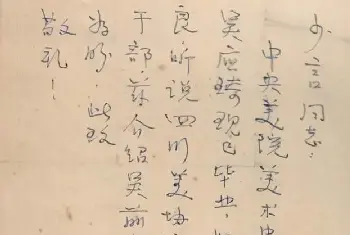 少言同志：
中央美院美术史
吴应骑现已毕业，
良听说四川美协
干部，兹介绍吴前
为盼，此致
敬礼！